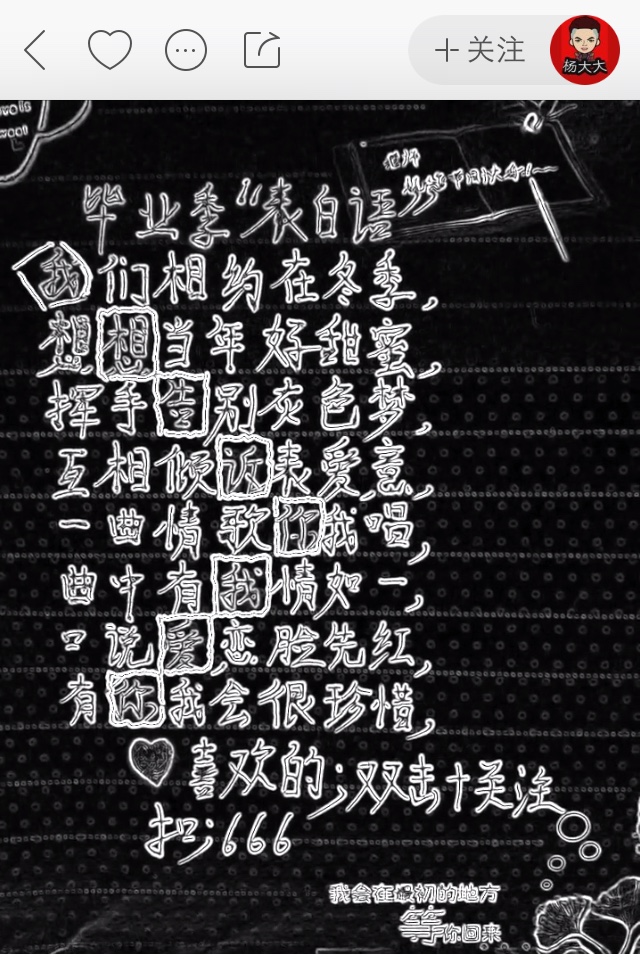 + 关注
杨大大
毕业季“表白语
我们相约在冬季,
想想当年好甜蜜,
挥手告别灰色梦,
互相倾诉表爱意,
一曲情歌你我唱,
曲中有我情如一,
口说爱恋脸先红,
有你我会很珍惜,
喜欢的;双击+关注
扣;666
我会在最初的地方
等你回来